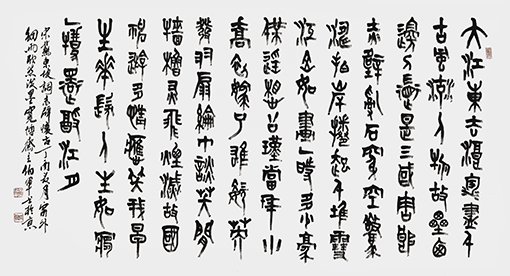 大江東去浪淘盡千
古風流人物故壘西
邊人道是三國周郎
赤壁亂石穿空驚
濤拍岸捲起千堆雪
江山如畫一時多少豪
傑遙想公瑾當年小
喬初嫁了雄姿英
發羽扇綸巾談笑間
檣櫓灰飛煙滅故國
神遊多情應笑我早
生華髮人生如夢
一尊還酹江月
宋蘇東坡詞赤壁懷古丁酉窗外
細雨